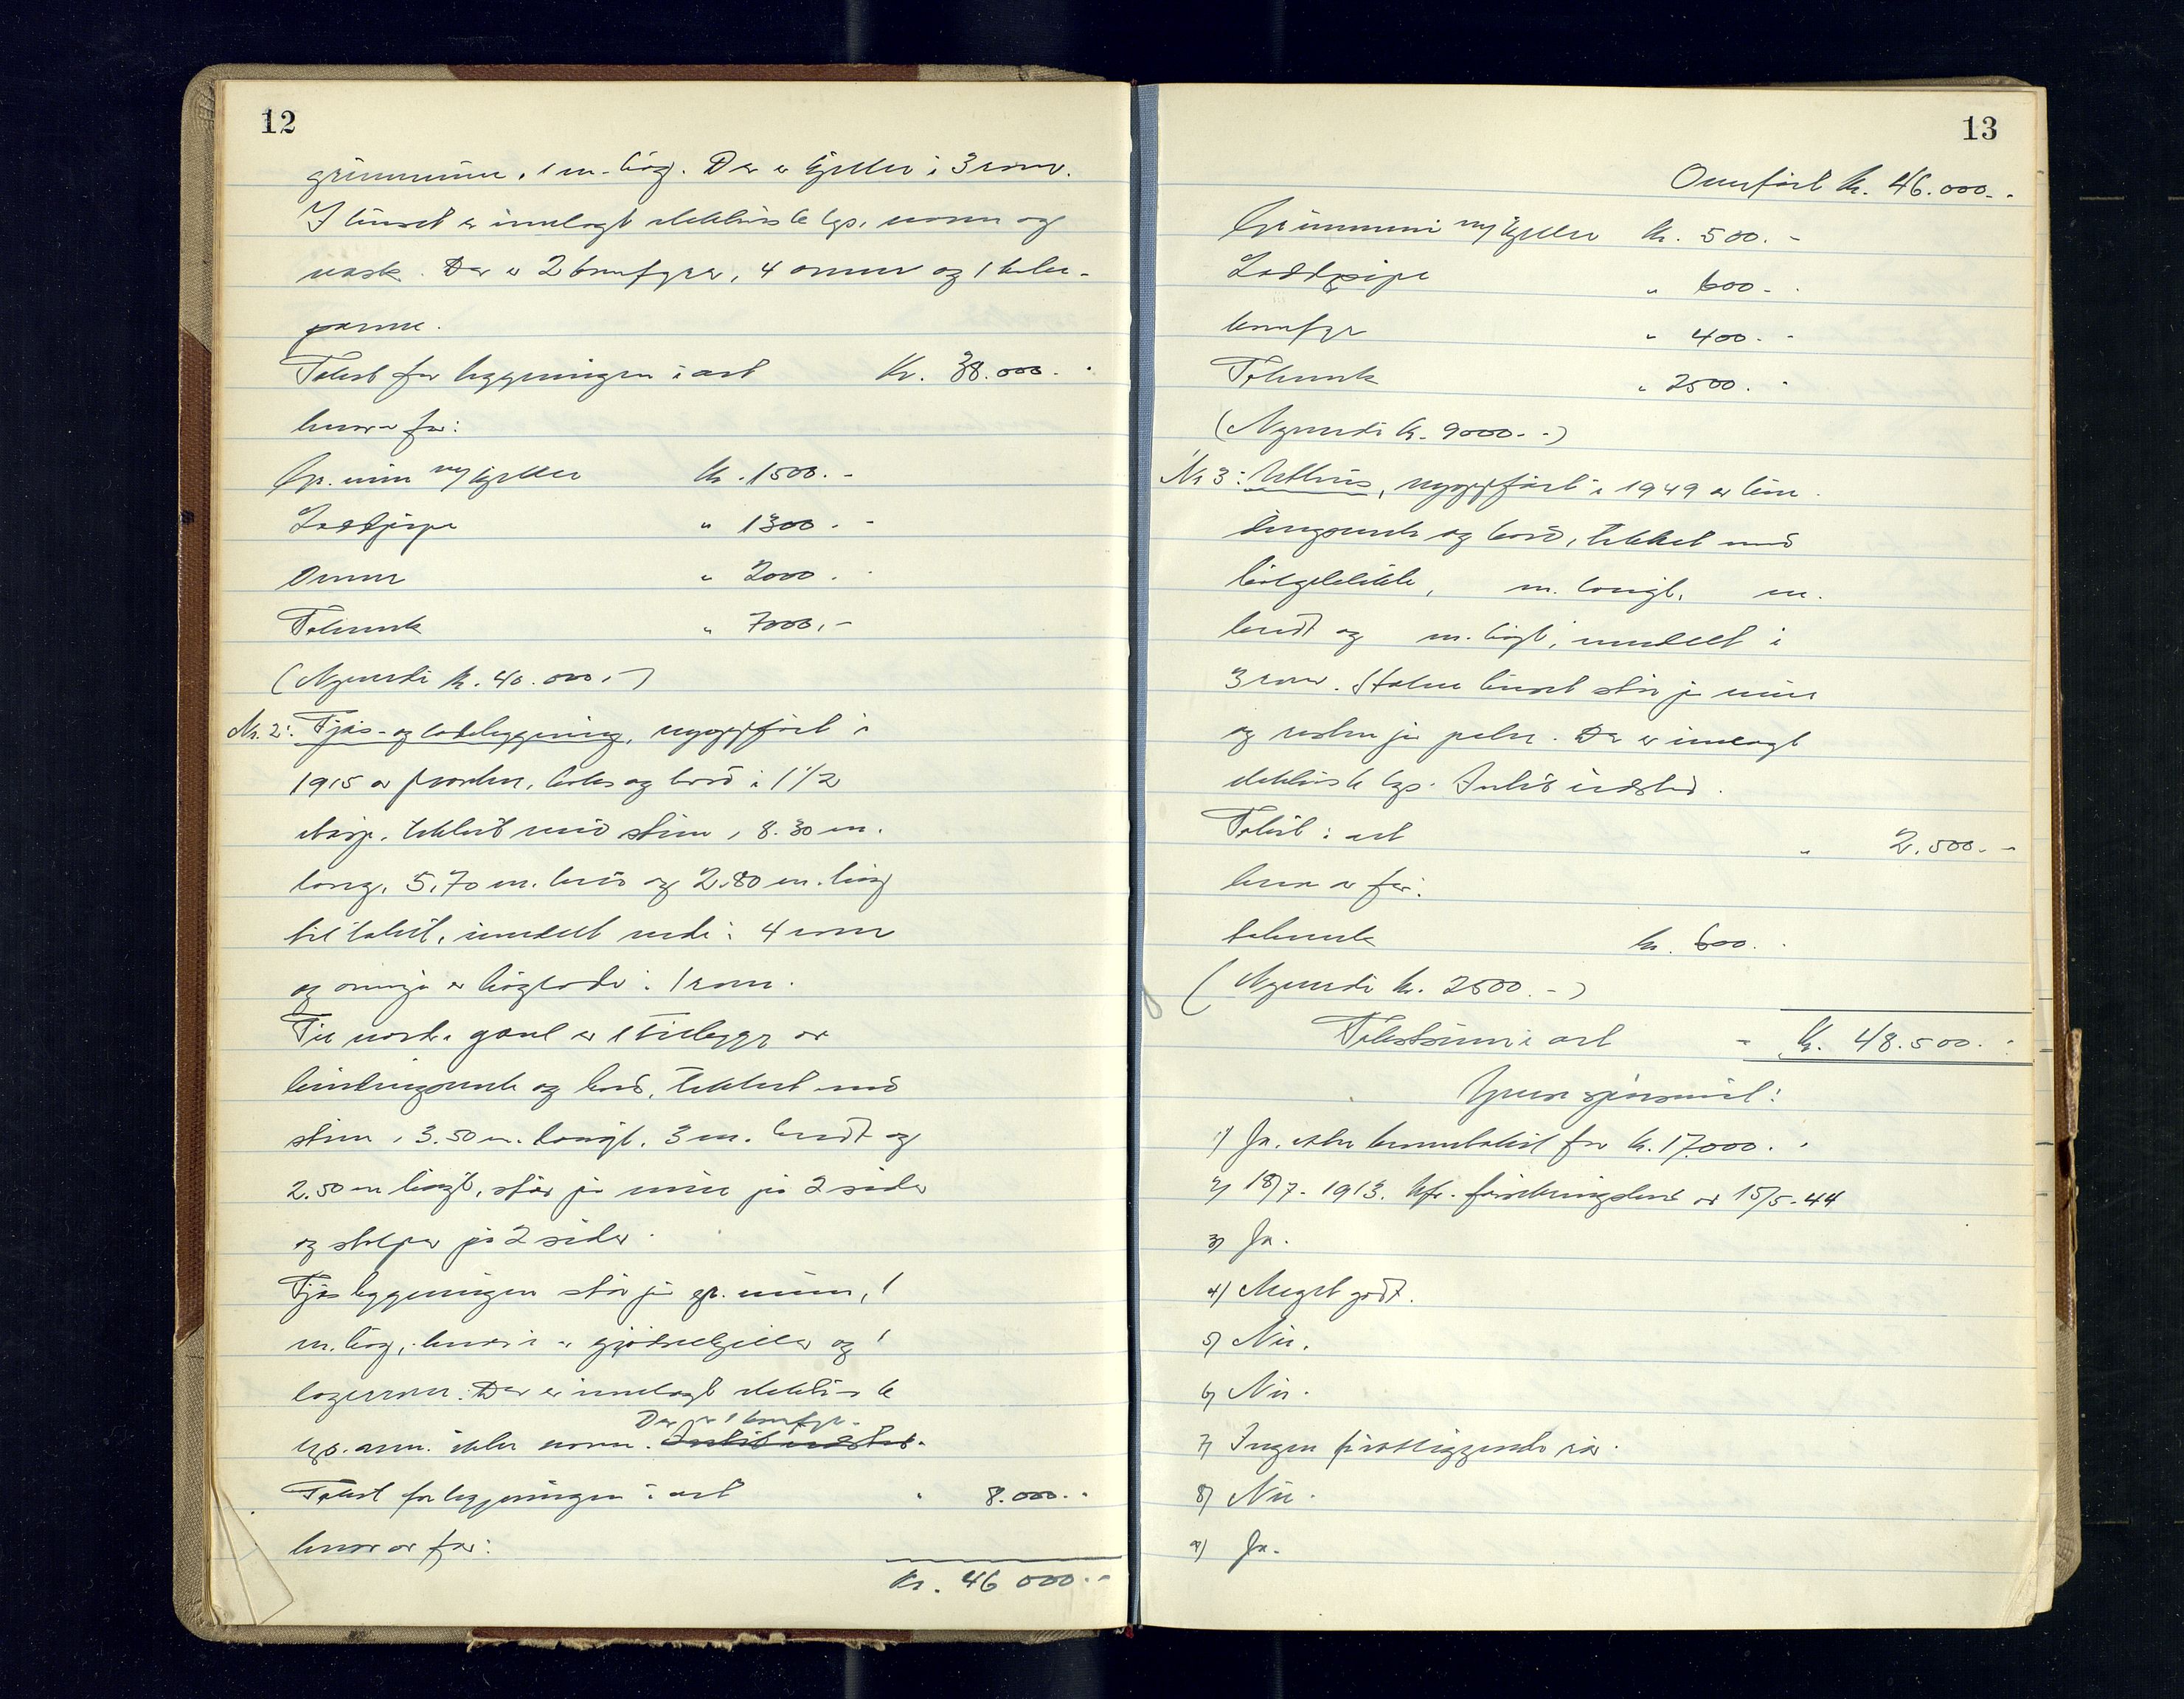 12
grunnmur, 1 m. høg. Der er kjeller i 3 rom.
I huset er innlagt elektrisk lys, vann og
vask. Der er 2 komfyrer, 4 ovner og 1 take-
panne.
Takst for bygningen i alt Kr. 38.000.-
hvorav for:
Gr. mur og kjeller Kr. 1500.-
Ildstpipe " 1300.-
Ovner " 2000.-
Takverk " 7000,-
(Nyverdi kr. 40.000,-)
Nr. 2: Fjøs- og ladebygning, nyoppført i
1915 av planker, laks og bord i 1 1/2
etasje, tekket med sten, 8.30 m.
lang, 5,70 m. brei og 2.80 m. høg
til taket, inndelt nede i 4 rom
og oventil er høglade i 1 rom.
Til nordre gavl er 1 tillegg av
bindingsverk og bord, tekket med
sten, 3.50 m. langt, 3 m. bredt og
2.50 m høgt, står på mur på 2 sider
og stolper på 2 sider.
Fjøsbygningen står på gr. mur, 1
m. høg, hvori er gjødselkjeller og 1
lagerrom. Der er innlagt elektrisk
Der er 1 komfyr.
lys. men ikke vann. Intet ildsted.
Takst for bygningen i alt " 8.000.-
hvorav for:
Kr. 46 000.-
13
Overført kr. 46.000.-
Grunnmur og kjeller Kr. 500.-
Ildstpipe " 600.-
komfyr " 400.-
Takverk " 2500.-
(Nyverdi kr. 9000.-)
Nr 3: Uthus, nyoppført i 1949 av bin-
dingsverk og bord, tekket med
bølgeblikk, m. langt, m.
bredt og m. høgt, inndelt i
3 rom. Halve huset står på mur
og resten på peler. Der er innlagt
elektrisk lys. Intet ildsted.
Takst i alt " 2.500.-
hvorav for:
takverk kr. 600.-
(Nyverdi kr. 2500.-)
Takstsum i alt - Kr. 48.500.-
1) Ja, etter branntakst for kr. 17.000.-
2) 18/7- 1913. Kfr. forsikringsbevis av 15/5-44
3) Ja.
4) Meget godt.
5) Nei.
6) Nei.
7) Ingen påtrengende
8) Nei.
9) Ja.